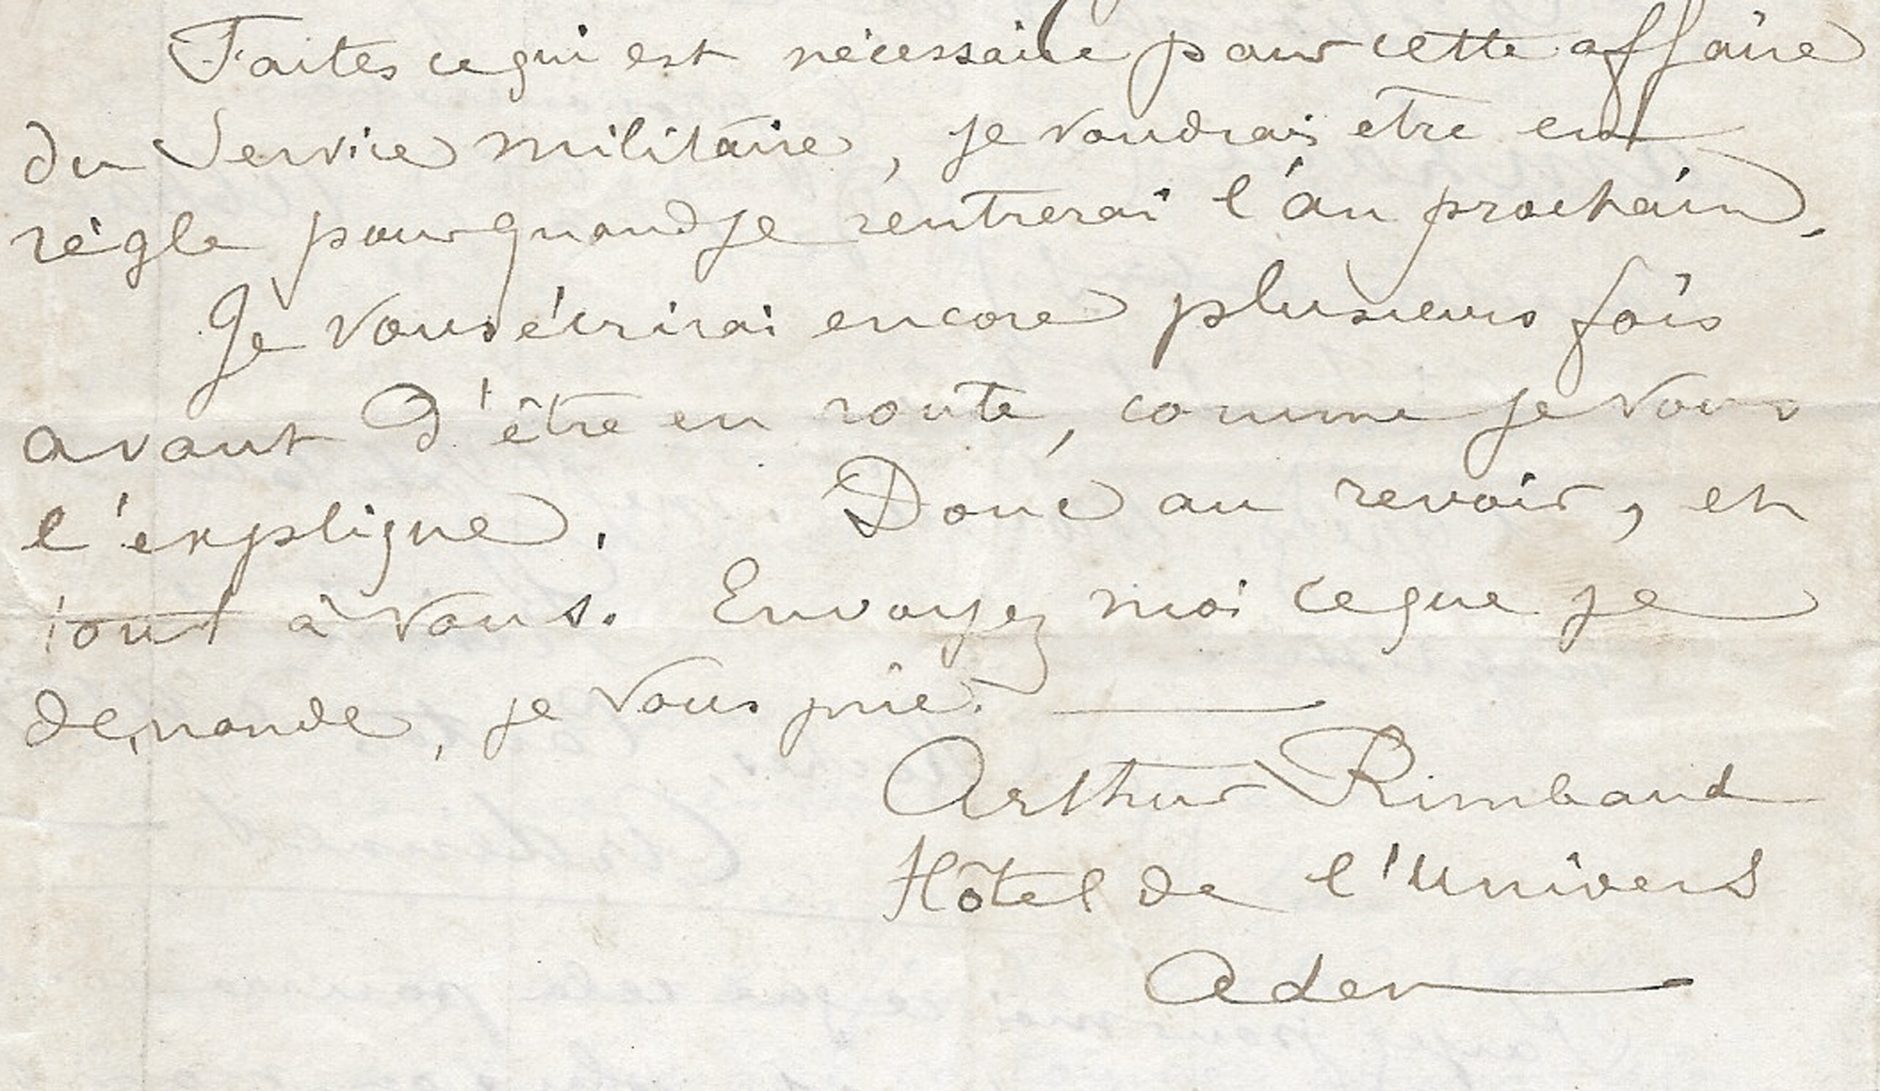 Faites ce qui est nécessaire pour cette affaire
du Service militaire, je voudrais etre en
règle pour quand je rentrerai l'an prochain.
Je vous écrirai encore plusieurs fois
avant d'être en route, comme je vous
l'explique. Donc au revoir, et
tout à vous. Envoyez moi ce que je
demande, je vous prie.
Arthur Rimbaud
Hôtel de l'Univers
Aden